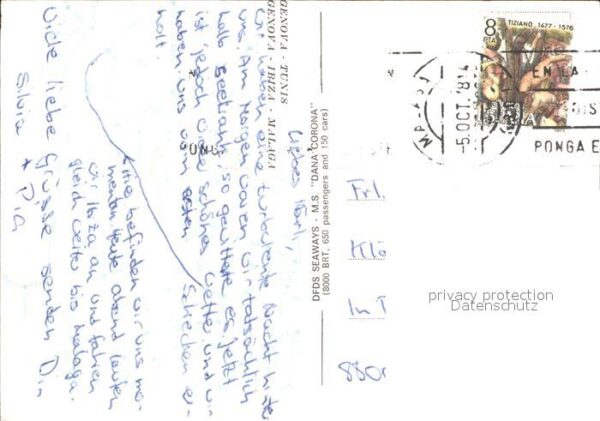 GENOVA - TUNIS
GENOVA - IBIZA - MALAGA
DFDS SEAWAYS - M.S. "DANA CORONA"
(8000 BRT, 650 passengers and 150 cars)
Liebes
wir haben eine turbulente Nacht hinter
uns. Am Morgen waren wir tatsächlich
halb so gewitterte es. Jetzt
ist jedoch wieder schönes Wetter und wir
haben uns vom ersten Schecken er-
holt.
Hier befinden wir uns mo-
mentan. Heute abend laufen
wir Ibiza an und fahren
gleich weiter bis Malaga.
Viele liebe Grüsse senden Dir
Silvia + Pia
8 PTA
TIZIANO, 1477 - 1576
-5.OCT.78
EN LA
PONGA E
Frl.
Klö
In T
880
privacy protection
Datenschutz